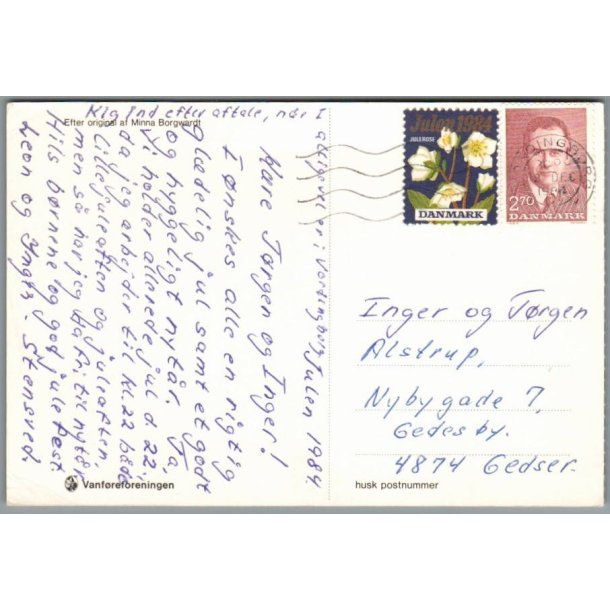 Efter original af Minna Borgwardt
Kig ind efter aftale, når I
alligevel er i Vordingborg
Julen 1984.
Kære Jørgen og Inger!
I ønskes alle en rigtig
glædelig jul samt et godt
og hyggeligt nytår. Ja,
vi holder allerede jul d 22;
da jeg arbejder til kl. 22 både
lillejuleaften og juleaften
men så har jeg da fri til nytår.
Hils børnene og god julefest
Leon og Yngli. Stensved.
Vanføreforeningen
Julen 1984
JULEROSE
DANMARK
2.70
DANMARK
DEC
Inger og Jørgen
Alstrup,
Nybygade 7,
Gedesby.
4874 Gedser.
husk postnummer